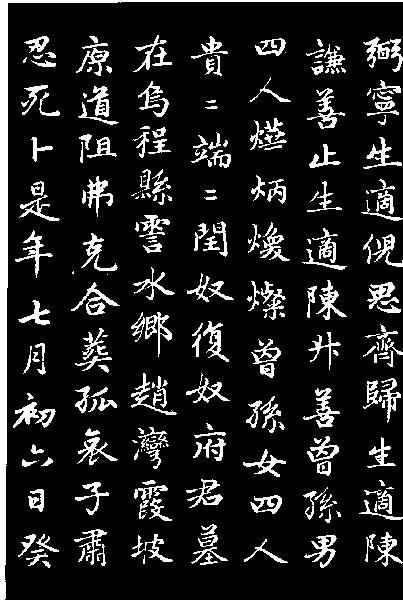 弼寧生適倪思齊歸生適陳
謙善止生適陳升善曾孫男
四人㷼炳煥燦曾孫女四人
貴〻端〻閏奴復奴府君墓
在烏程縣霅水鄉趙灣霞坡
原道阻弗克合葬孤哀子肅
忍死卜是年七月初六日癸